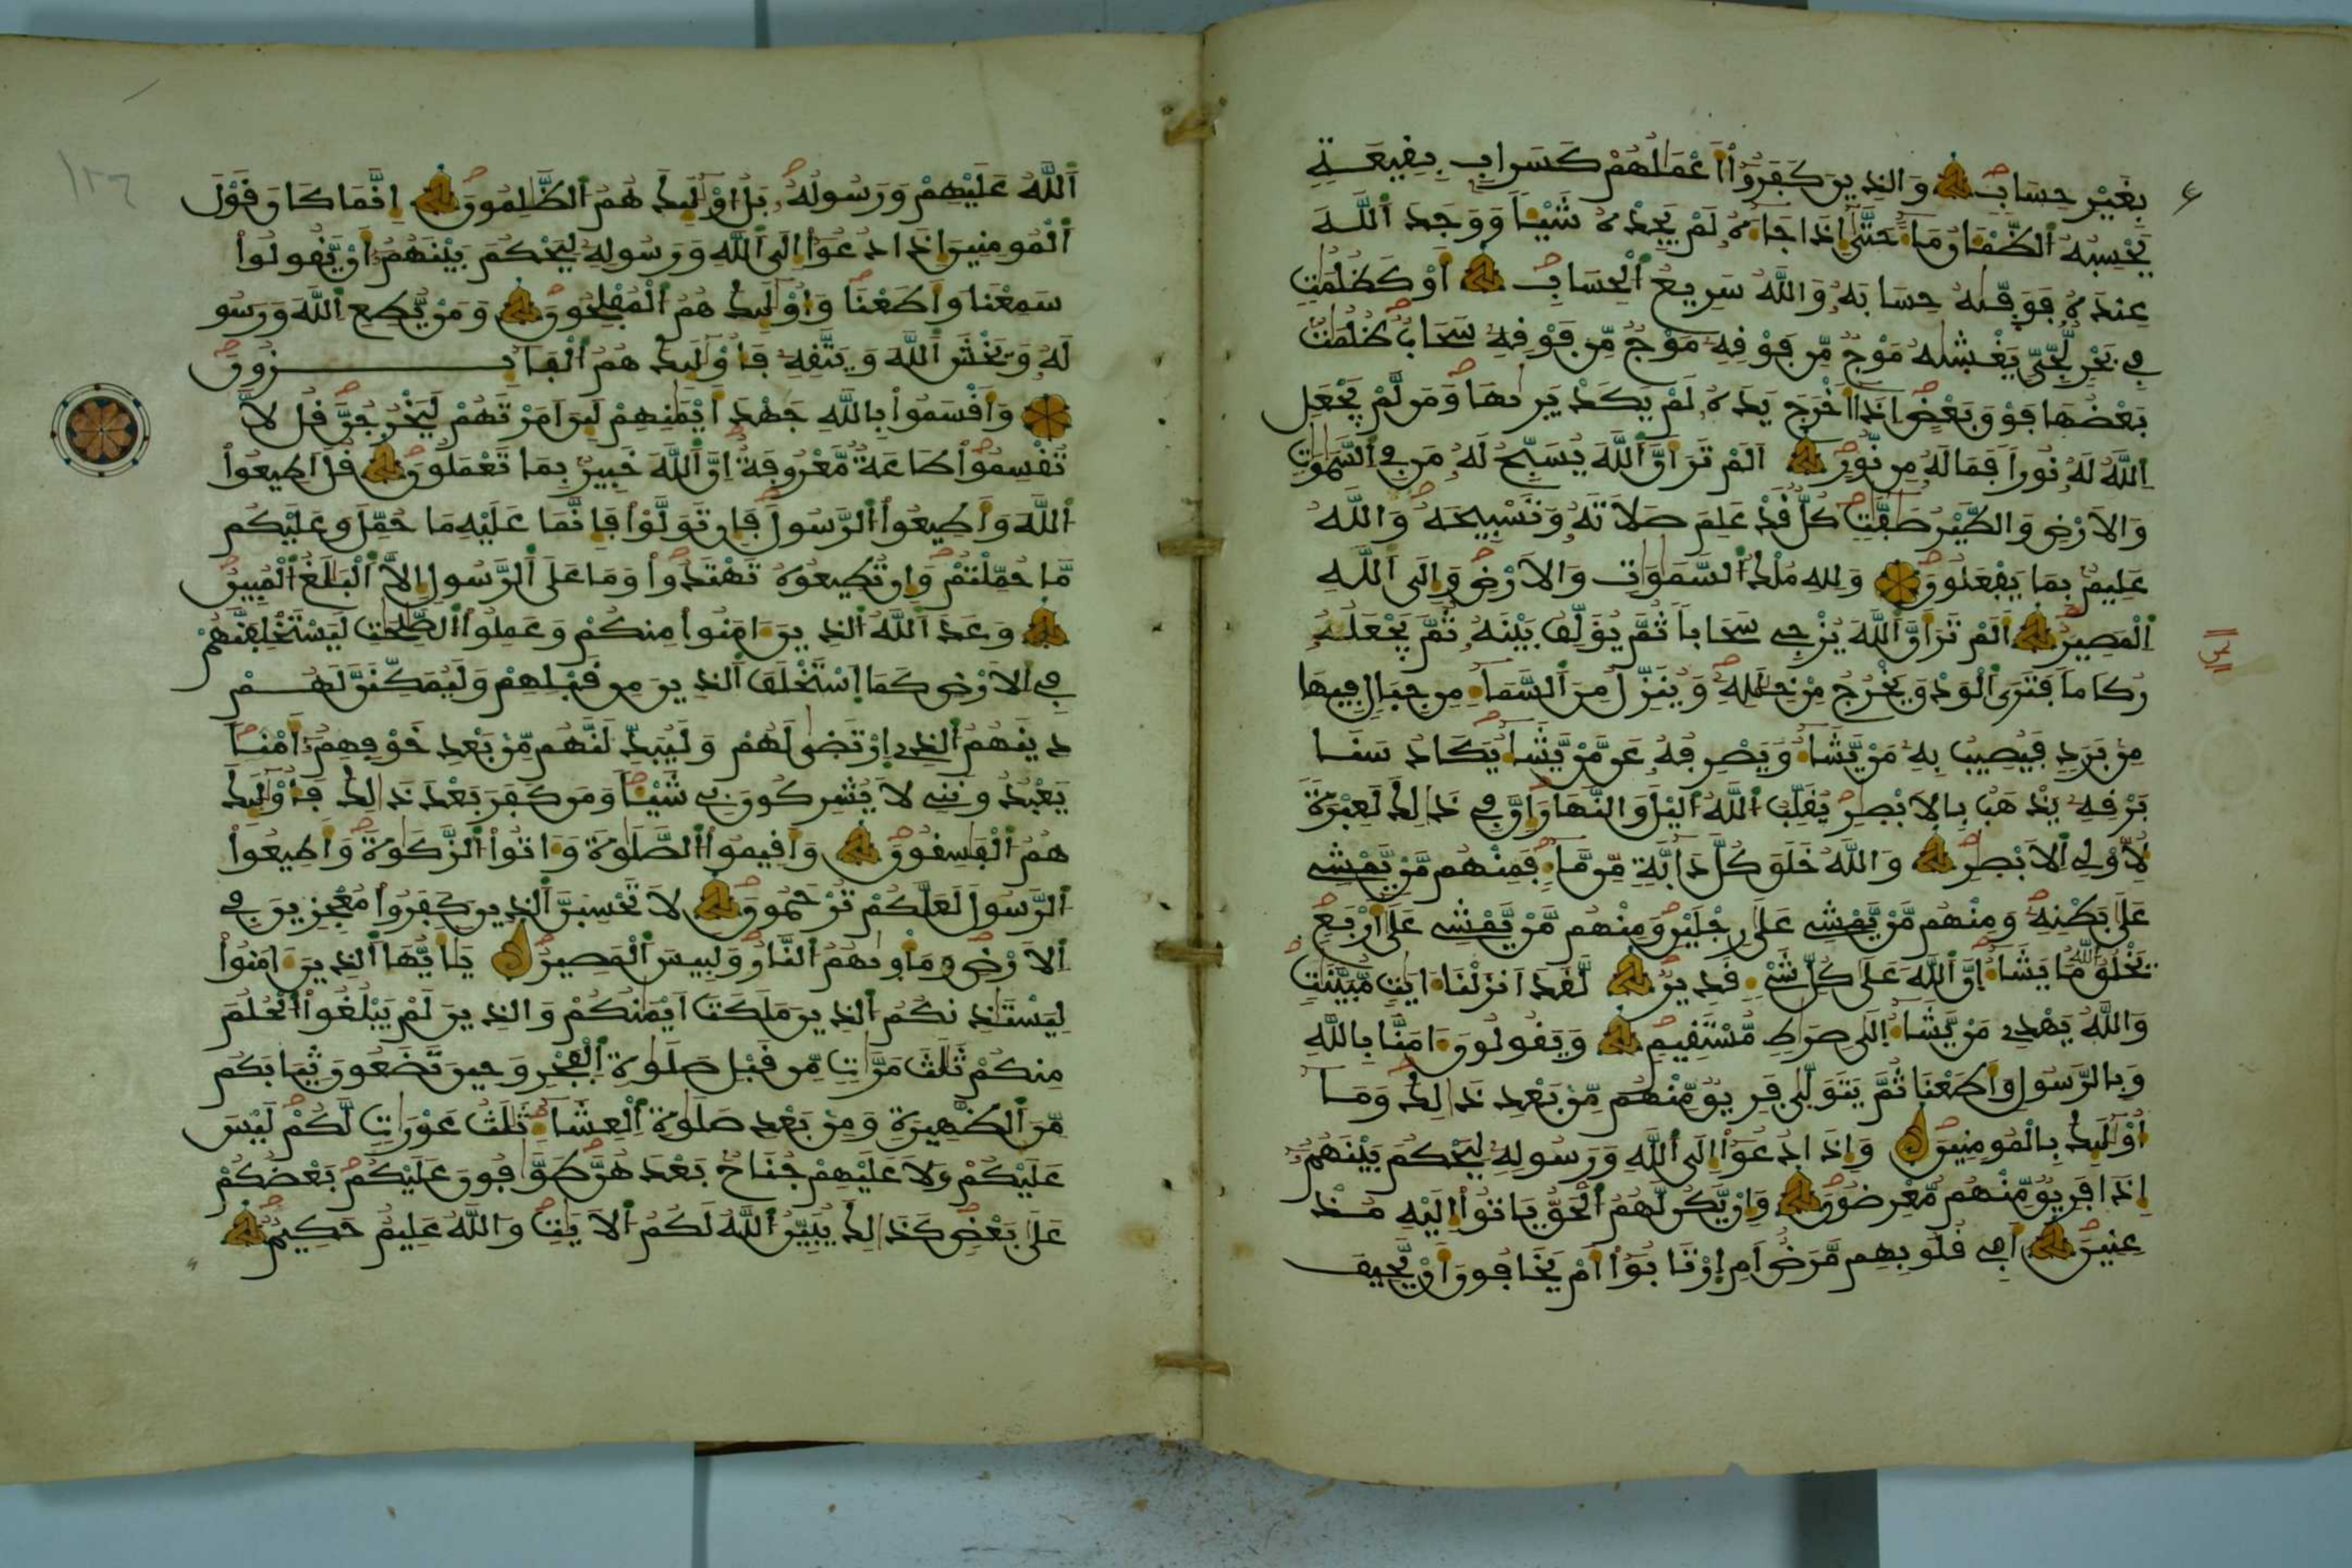 بِغَيْرِ حِسَابٍ وَالذِينَ كَفَرُوٓاْ أَعْمَٰلُهُمْ كَسَرَابِۭ بِقِيعَةٖ
يَحْسِبُهُ اُلظَّمْـَٔانُ مَآءً حَتَّىٰٓ إِذَا جَآءَهُۥ لَمْ يَجِدْهُ شَيْـٔاٗ وَوَجَدَ اَللَّهَ
عِندَهُۥ فَوَفّىٰهُ حِسَابَهُۥ وَاللَّهُ سَرِيعُ اُلْحِسَابِ أَوْ كَظُلُمَٰتٖ
فِے بَحْرٖ لُّجِّيّٖ يَغْشىٰهُ مَوْجٞ مِّن فَوْقِهِۦ مَوْجٞ مِّن فَوْقِهِۦ سَحَابٞ ظُلُمَٰتُۢ
بَعْضُهَا فَوْقَ بَعْضٍ إِذَآ أَخْرَجَ يَدَهُۥ لَمْ يَكَدْ يَرىٰهَا وَمَن لَّمْ يَجْعَلِ
اِللَّهُ لَهُۥ نُوراٗ فَمَا لَهُۥ مِن نُّورٍ اَلَمْ تَرَ أَنَّ اَللَّهَ يُسَبِّحُ لَهُۥ مَن فِے اِلسَّمَٰوَٰتِ
وَالَارْضِ وَالطَّيْرُ صَٰٓفَّٰتٖ كُلّٞ قَدْ عَلِمَ صَلَاتَهُۥ وَتَسْبِيحَهُۥ وَاللَّهُ
عَلِيمُۢ بِمَا يَفْعَلُونَ وَلِلهِ مُلْكُ اُلسَّمَٰوَٰتِ وَالَارْضِ وَإِلَى اَللَّهِ
اِلْمَصِيرُ أَلَمْ تَرَ أَنَّ اَللَّهَ يُزْجِے سَحَاباٗ ثُمَّ يُؤَلِّفُ بَيْنَهُۥ ثُمَّ يَجْعَلُهُۥ
رُكَاماٗ فَتَرَى اَلْوَدْقَ يَخْرُجُ مِنْ خِلَٰلِهِۦ وَيُنَزِّلُ مِنَ اَلسَّمَآءِ مِن جِبَالٖ فِيهَا
مِنۢ بَرَدٖ فَيُصِيبُ بِهِۦ مَنْ يَّشَآءُ وَيَصْرِفُهُۥ عَن مَّنْ يَّشَآءُ يَكَادُ سَنَا
بَرْقِهِۦ يَذْهَبُ بِالَابْصٰ۪رِ يُقَلِّبُ اُللَّهُ اُليْلَ وَالنَّهَارَ إِنَّ فِے ذَٰلِكَ لَعِبْرَةٗ
لِّأُوْلِے اِلَابْصٰ۪رِ وَاللَّهُ خَلَقَ كُلَّ دَآبَّةٖ مِّن مَّآءٖ فَمِنْهُم مَّنْ يَّمْشِے
عَلَىٰ بَطْنِهِۦ وَمِنْهُم مَّنْ يَّمْشِے عَلَىٰ رِجْلَيْنِ وَمِنْهُم مَّنْ يَّمْشِے عَلَىٰٓ أَرْبَعٖ
يَخْلُقُ اُللَّهُ مَا يَشَآءُ اِنَّ اَللَّهَ عَلَىٰ كُلِّ شَےْءٖ قَدِيرٞ لَّقَدَ اَنزَلْنَآ ءَايَٰتٖ مُّبَيَّنَٰتٖ
وَاللَّهُ يَهْدِے مَنْ يَّشَآءُ اِلَىٰ صِرَٰطٖ مُّسْتَقِيمٖ وَيَقُولُونَ ءَامَنَّا بِاللَّهِ
وَبِالرَّسُولِ وَأَطَعْنَا ثُمَّ يَتَوَلَّىٰ فَرِيقٞ مِّنْهُم مِّنۢ بَعْدِ ذَٰلِكَ وَمَآ
أُوْلَٰٓئِكَ بِالْمُومِنِينَ وَإِذَا دُعُوٓاْ إِلَى اَللَّهِ وَرَسُولِهِۦ لِيَحْكُمَ بَيْنَهُمُۥٓ
إِذَا فَرِيقٞ مِّنْهُم مُّعْرِضُونَ وَإِنْ يَّكُن لَّهُمُ اُلْحَقُّ يَاتُوٓاْ إِلَيْهِ مُذْ
عِنِينَ أَفِے قُلُوبِهِم مَّرَضٌ اَمِ اِرْتَابُوٓاْ أَمْ يَخَافُونَ أَنْ يَّحِيفَ
اَللَّهُ عَلَيْهِمْ وَرَسُولُهُۥ بَلُ اوْلَٰٓئِكَ هُمُ اُلظَّٰلِمُونَ إِنَّمَا كَانَ قَوْلَ
اَلْمُومِنِينَ إِذَا دُعُوٓاْ إِلَى اَللَّهِ وَرَسُولِهِۦ لِيَحْكُمَ بَيْنَهُمُۥٓ أَنْ يَّقُولُواْ
سَمِعْنَا وَأَطَعْنَا وَأُوْلَٰٓئِكَ هُمُ اُلْمُفْلِحُونَ وَمَنْ يُّطِعِ اِللَّهَ وَرَسُو
لَهُۥ وَيَخْشَ اَللَّهَ وَيَتَّقِهِۦ فَأُوْلَٰٓئِكَ هُمُ اُلْفَآئِزُونَ
وَأَقْسَمُواْ بِاللَّهِ جَهْدَ أَيْمَٰنِهِمْ لَئِنَ اَمَرْتَهُمْ لَيَخْرُجُنَّ قُل لَّا
تُقْسِمُواْ طَاعَةٞ مَّعْرُوفَةٌ اِنَّ اَللَّهَ خَبِيرُۢ بِمَا تَعْمَلُونَ قُلَ اَطِيعُواْ
اُللَّهَ وَأَطِيعُواْ اُلرَّسُولَ فَإِن تَوَلَّوْاْ فَإِنَّمَا عَلَيْهِ مَا حُمِّلَ وَعَلَيْكُم
مَّا حُمِّلْتُمْ وَإِن تُطِيعُوهُ تَهْتَدُواْ وَمَا عَلَى اَلرَّسُولِ إِلَّا اَلْبَلَٰغُ اُلْمُبِينُ
وَعَدَ اَللَّهُ اُلذِينَ ءَامَنُواْ مِنكُمْ وَعَمِلُواْ اُلصَّٰلِحَٰتِ لَيَسْتَخْلِفَنَّهُمْ
فِے اِلَارْضِ كَمَا اَسْتَخْلَفَ اَلذِينَ مِن قَبْلِهِمْ وَلَيُمَكِّنَنَّ لَهُمْ
دِينَهُمُ اُلذِے اِرْتَضَىٰ لَهُمْ وَلَيُبَدِّلَنَّهُم مِّنۢ بَعْدِ خَوْفِهِمُۥٓ أَمْناٗ
يَعْبُدُونَنِے لَا يُشْرِكُونَ بِے شَيْـٔاٗ وَمَن كَفَرَ بَعْدَ ذَٰلِكَ فَأُوْلَٰٓئِكَ
هُمُ اُلْفَٰسِقُونَ وَأَقِيمُواْ اُلصَّلَوٰةَ وَءَاتُواْ اُلزَّكَوٰةَ وَأَطِيعُواْ
اُلرَّسُولَ لَعَلَّكُمْ تُرْحَمُونَ لَا تَحْسِبَنَّ اَلذِينَ كَفَرُواْ مُعْجِزِينَ فِے
اِلَارْضِ وَمَأْوىٰهُمُ اُلنَّارُ وَلَبِيسَ اَلْمَصِيرُ يَٰٓأَيُّهَا اَلذِينَ ءَامَنُواْ
لِيَسْتَٰذِنكُمُ اُلذِينَ مَلَكَتَ اَيْمَٰنُكُمْ وَالذِينَ لَمْ يَبْلُغُواْ اُلْحُلُمَ
مِنكُمْ ثَلَٰثَ مَرَّٰتٖ مِّن قَبْلِ صَلَوٰةِ اِلْفَجْرِ وَحِينَ تَضَعُونَ ثِيَابَكُم
مِّنَ اَلظَّهِيرَةِ وَمِنۢ بَعْدِ صَلَوٰةِ اِلْعِشَآءِ ثَلَٰثُ عَوْرَٰتٖ لَّكُمْ لَيْسَ
عَلَيْكُمْ وَلَا عَلَيْهِمْ جُنَاحُۢ بَعْدَهُنَّ طَوَّٰفُونَ عَلَيْكُم بَعْضُكُمْ
عَلَىٰ بَعْضٖ كَذَٰلِكَ يُبَيِّنُ اُللَّهُ لَكُمُ اُلَايَٰتِ وَاللَّهُ عَلِيمٌ حَكِيمٞ